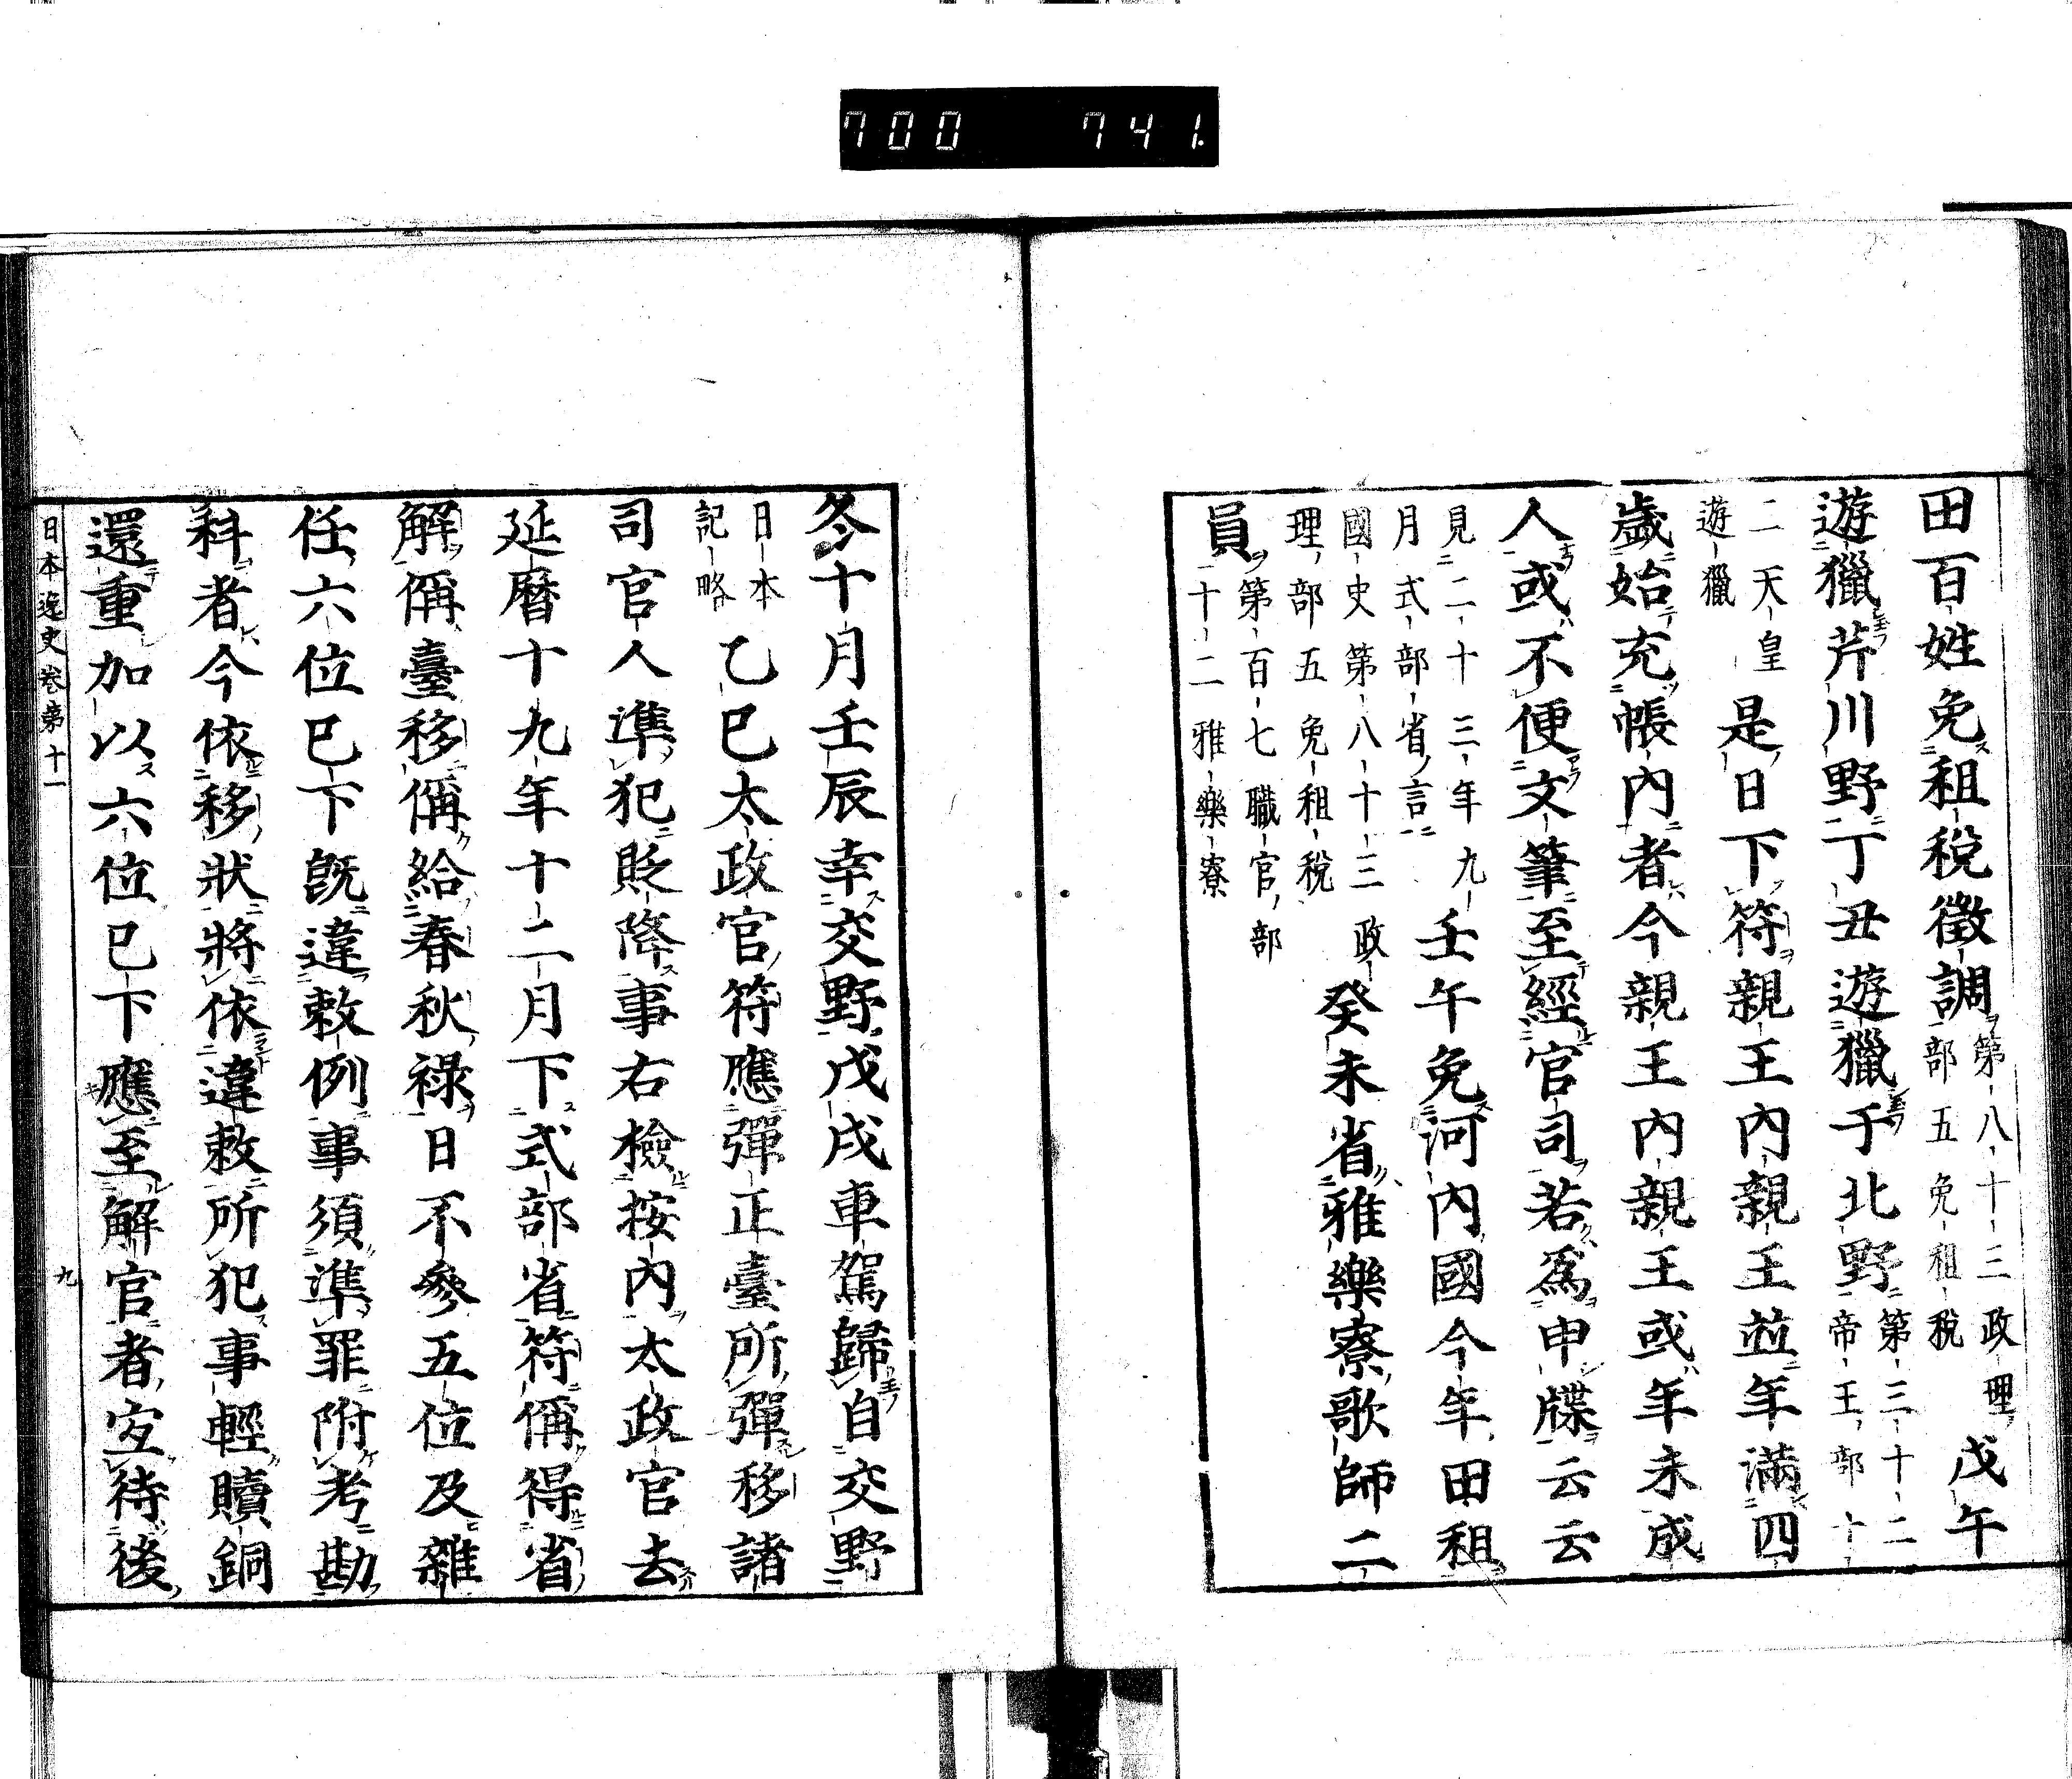 700 741
田百姓免租稅徵調第八十三政理部五免租稅戊午
遊獵芹川野丁丑遊獵于北野第三十二帝王部十
二天皇遊獵是日下符親王內親王並年滿四
歲始充帳內者今親王內親王或年未成
人或不便文筆至經官司若爲申牒云云
見二十三年九月式部省言壬午免河內國今年田租
國史第八十三政理部五免租稅癸未省雅樂寮歌師二
員第百七職官部十二雅樂寮
冬十月壬辰幸交野戊戌車駕歸自交野
日本記略乙巳太政官符應彈正臺所彈移諸
司官人準犯貶降事右檢按內太政官去
延曆十九年十二月下式部省符偁得省
解偁臺移偁給春秋祿日不參五位及雜
任六位已下旣違敕例事須準罪附考勘
科者今依移狀將依違敕所犯事輕贖銅
還重加以六位已下應至解官者宜待後
日本逸史卷第十一
九